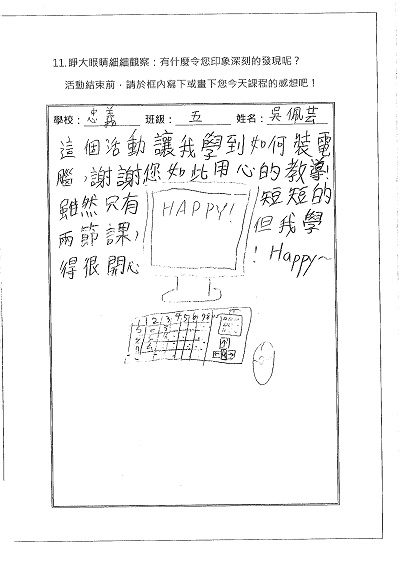 11.睜大眼睛細細觀察：有什麼令您印象深刻的發現呢？
活動結束前，請於框內寫下或畫下您今天課程的感想吧！
學校：忠義 班級：五 姓名：吳佩芸
這個活動讓我學到如何裝電
腦，謝謝您如此用心的教導！
雖然只有短短的
兩節課，但我學
得很開心！Happy~
HAPPY!
1 2 3 4 5 6 7 8